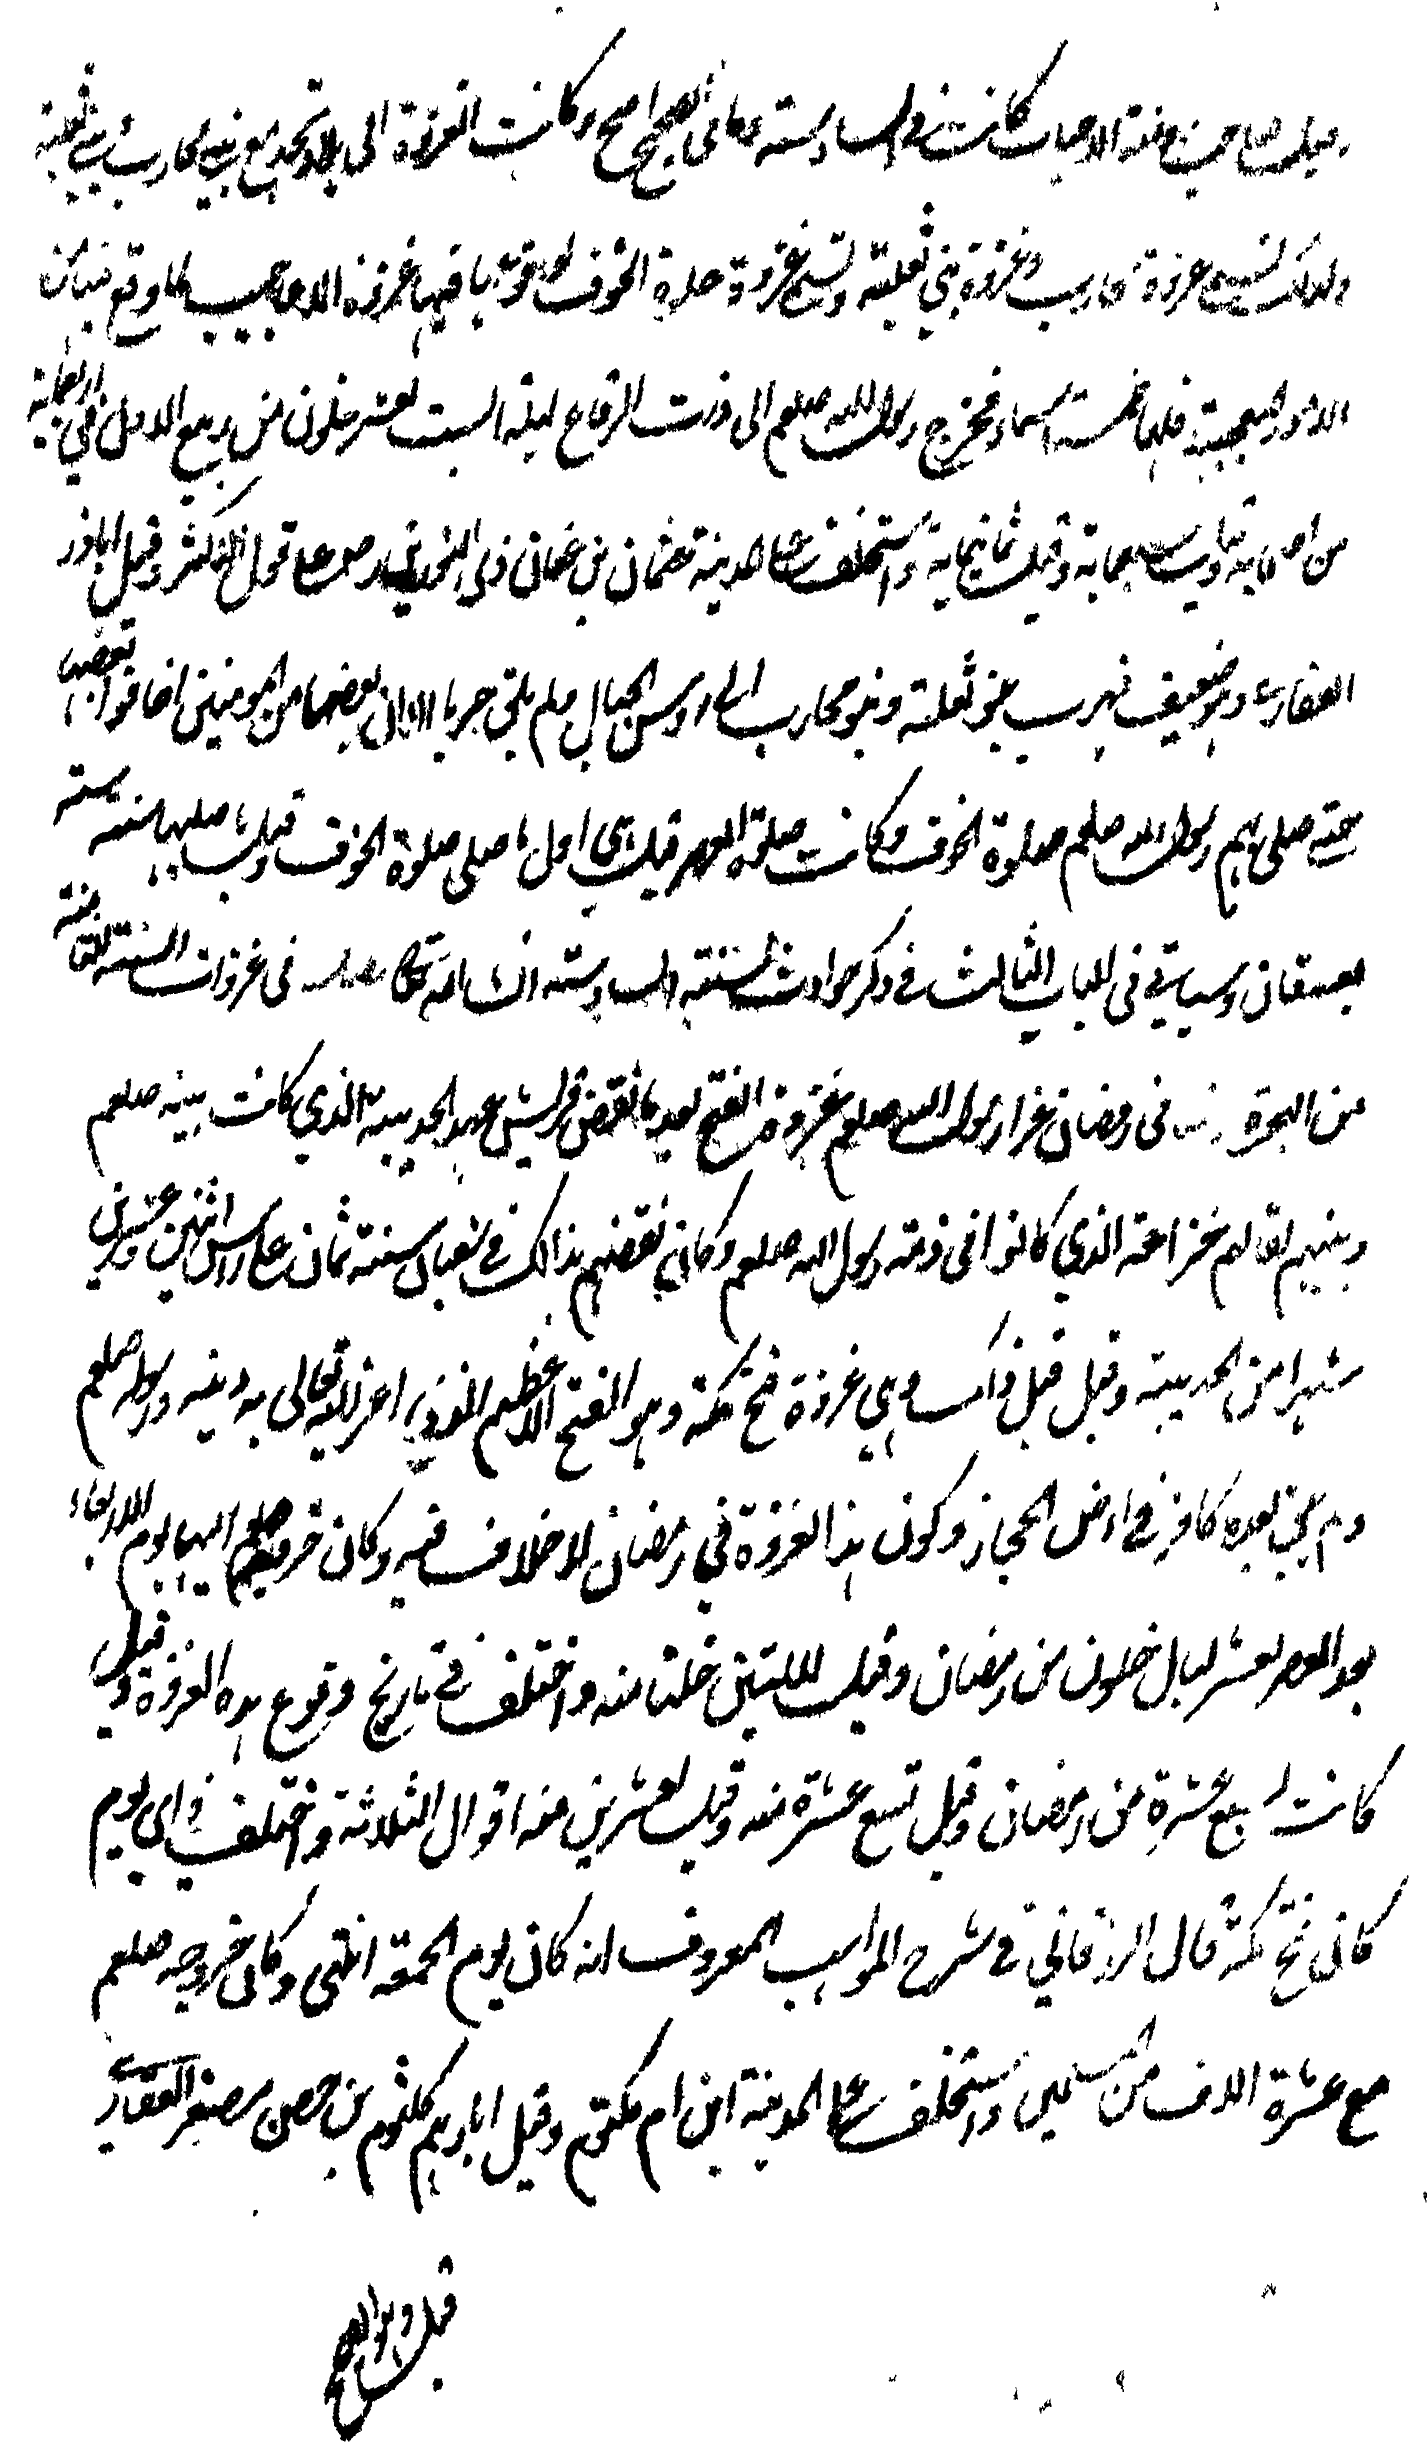 كانت في السادسة وما في الصحيح اصح وكانت الغزوة الى بلاد نجد مع بني محارب وبني ثعلبة
ولذلك تسمى غزوة محارب وغزوة بني ثعلبة وتسمى غزوة صلوة الخوف لوقوعها فيها وغزوة الاعاجيب لما وقع فيها من
الامور العجيبة فلها خمسة اسماء فخرج رسول الله صلعم الى ذات الرقاع ليلة السبت لعشر خلون من ربيع الاول في اربعماية
من اصحابه وقيل سبعماية وقيل ثمانماية واستخلف على المدينة عثمان بن عفان ذي النورين رضي على قول الاكثر وقيل اباذر
الغفاري وهو ضعيف فهرب بنو ثعلبة وبنو محارب الى رؤس الجبال ولم يلق حربا الا ان بعضها من المومنين اخافوا بعضها
حتى صلى بهم رسول الله صلعم صلوة الخوف وكانت صلوة العصر قيل هي اول ما صلى صلوة الخوف وقيل صليها سنة ستة
بعسفان وسياتي في الباب الثالث في ذكر حوادث السنة السادسة انشاء الله تعالى فصل في غزوات السنة الثامنة
من الهجرة في رمضان غزا رسول الله صلعم غزوة الفتح بعد ما نقض قريش عهد الحديبية الذي كانت بينه صلعم
وبينهم لقتالهم خزاعة الذي كانوا في ذمة رسول الله صلعم وكان نقضهم بذالك في شعبان سنة ثمان على راس اثنين وعشرين
شهرا من الحديبية وقيل قبل ذاك وهي غزوة فتح مكة وهو الفتح الاعظم الذي اعز الله تعالى به دينه ورسوله صلعم
ولم يبق بعده كافر في ارض الحجاز وكون هذا الغزوة في رمضان لا خلاف فيه وكان خروجه صلعم اليها يوم الاربعاء
بعد العصر لعشر ليال خلون من رمضان وقيل لليلتين خلتا منه واختلف في تاريخ وقوع هذه الغزوة وقيل
كانت لسبع عشرة من رمضان وقيل تسع عشرة منه وقيل لعشرين منه اقوال الثلاثة واختلف في اي يوم
كان فتح مكة قال الزرقاني في شرح المواهب المعروف انه كان يوم الجمعة انتهى وكان خروجه صلعم
مع عشرة الاف من المسلمين واستخلف على المدينة ابن ام مكتوم وقيل ابارهم كلثوم بن حصين مصغر الغفاري
قيل وهو الاصح